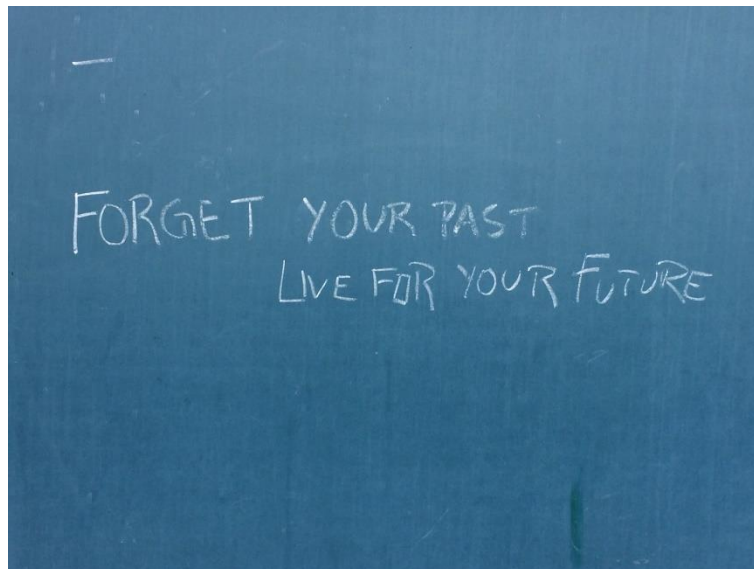 FORGET YOUR PAST
LIVE FOR YOUR FUTURE